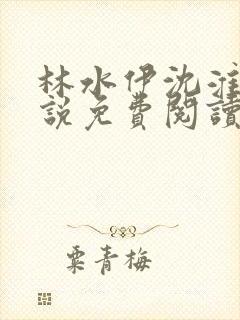 林水伊沈淮
說免費閱讀
粟青梅